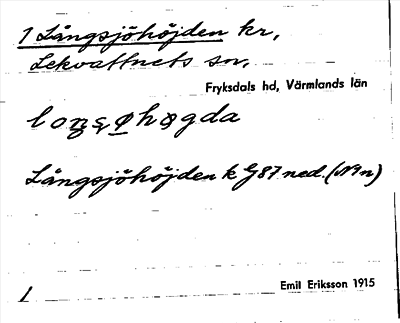 1 Långsjöhöjden kr,
Lekvattnets sn,
Fryksdals hd, Värmlands län
Långsjöhöjden k G87 ned. (N9n)
Emil Eriksson 1915
1